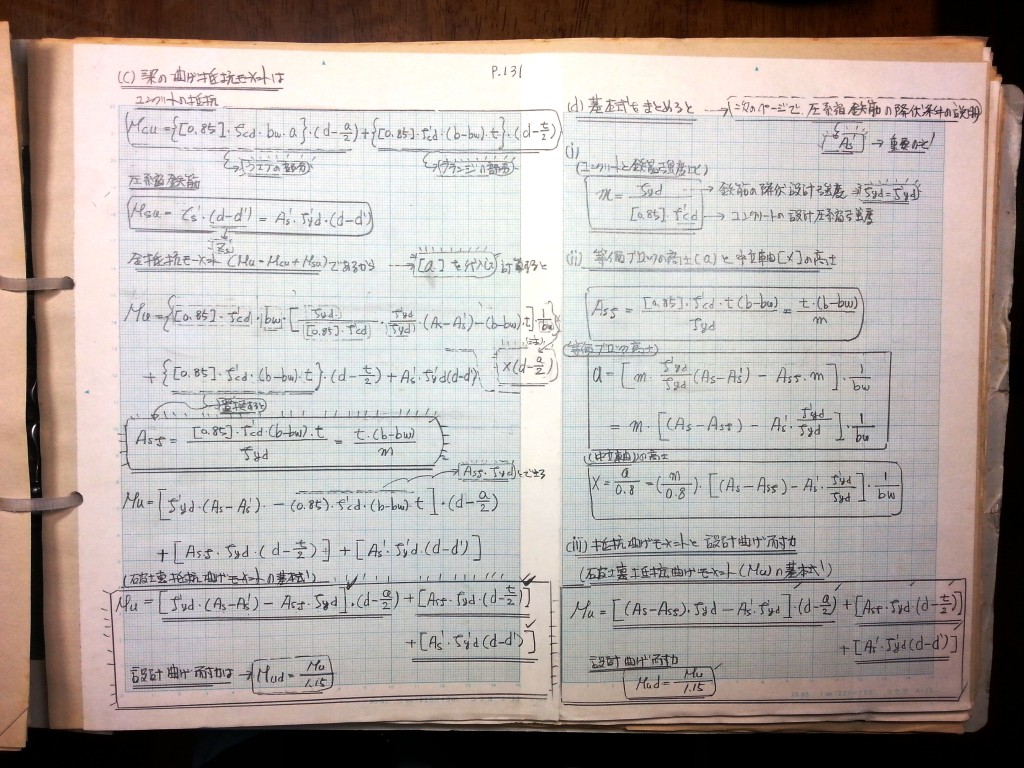 P.131
(C) 梁の曲げ抵抗モーメントは
コンクリートの抵抗
Mcu = {[0.85]・f'cd・bw・a}・(d-a/2) + {[0.85]・f'cd・(b-bw)・t}・(d-t/2)
ウェブの部分 フランジの部分
圧縮鉄筋
Msu = Cs'・(d-d') = As'・f'yd・(d-d')
Zs
全抵抗モーメント (Mu = Mcu + Msu) であるから → [a] を代入し計算すると
Mu = {[0.85]・f'cd・bw・[fyd/([0.85]・f'cd)・f'yd/fyd・(As-As')-(b-bw)・t]・1/bw}
×(d-a/2)
+ {[0.85]・f'cd・(b-bw)・t}・(d-t/2) + As'・f'yd(d-d')
置換すると
Asf = [0.85]・f'cd・(b-bw)・t / fyd = t・(b-bw) / m
[Asf・fyd] とできる
Mu = [f'yd・(As-As')・-(0.85)・f'cd・(b-bw)・t]・(d-a/2)
+ [Asf・fyd・(d-t/2)] + [As'・f'yd・(d-d')]
抵抗曲げモーメントの基本式
Mu = [f'yd・(As-As') - Asf・fyd]・(d-a/2) + [Asf・fyd・(d-t/2)]
+ [As'・f'yd(d-d')]
設計曲げ耐力は → Mud = Mu/1.15
(d) 基本式をまとめると → 次のページで、圧縮鉄筋の降伏条件の説明
As' → 重要かと!
(i)
(コンクリートと鉄筋強度比)
m = fyd / [0.85]・f'cd
→ 鉄筋の降伏設計強度 → f'yd = fyd
→ コンクリートの設計圧縮強度
(ii) 等価ブロックの高さ (a) と中立軸 [X] の高さ
Asf = [0.85]・f'cd・t(b-bw) / fyd = t・(b-bw) / m
(等価ブロック高さ)
a = [m・f'yd/fyd(As-As') - Asf・m]・1/bw
= m・[(As-Asf) - As'・f'yd/fyd]・1/bw
(中立軸)の高さ
X = a/0.8 = (m/0.8)・[(As-Asf) - As'・f'yd/fyd]・1/bw
(iii) 抵抗曲げモーメントと設計曲げ耐力
抵抗曲げモーメント (Mu) の基本式
Mu = [(As-Asf)・fyd - As'・f'yd]・(d-a/2) + [Asf・fyd(d-t/2)]
+ [As'・f'yd(d-d')]
設計曲げ耐力
Mud = Mu/1.15